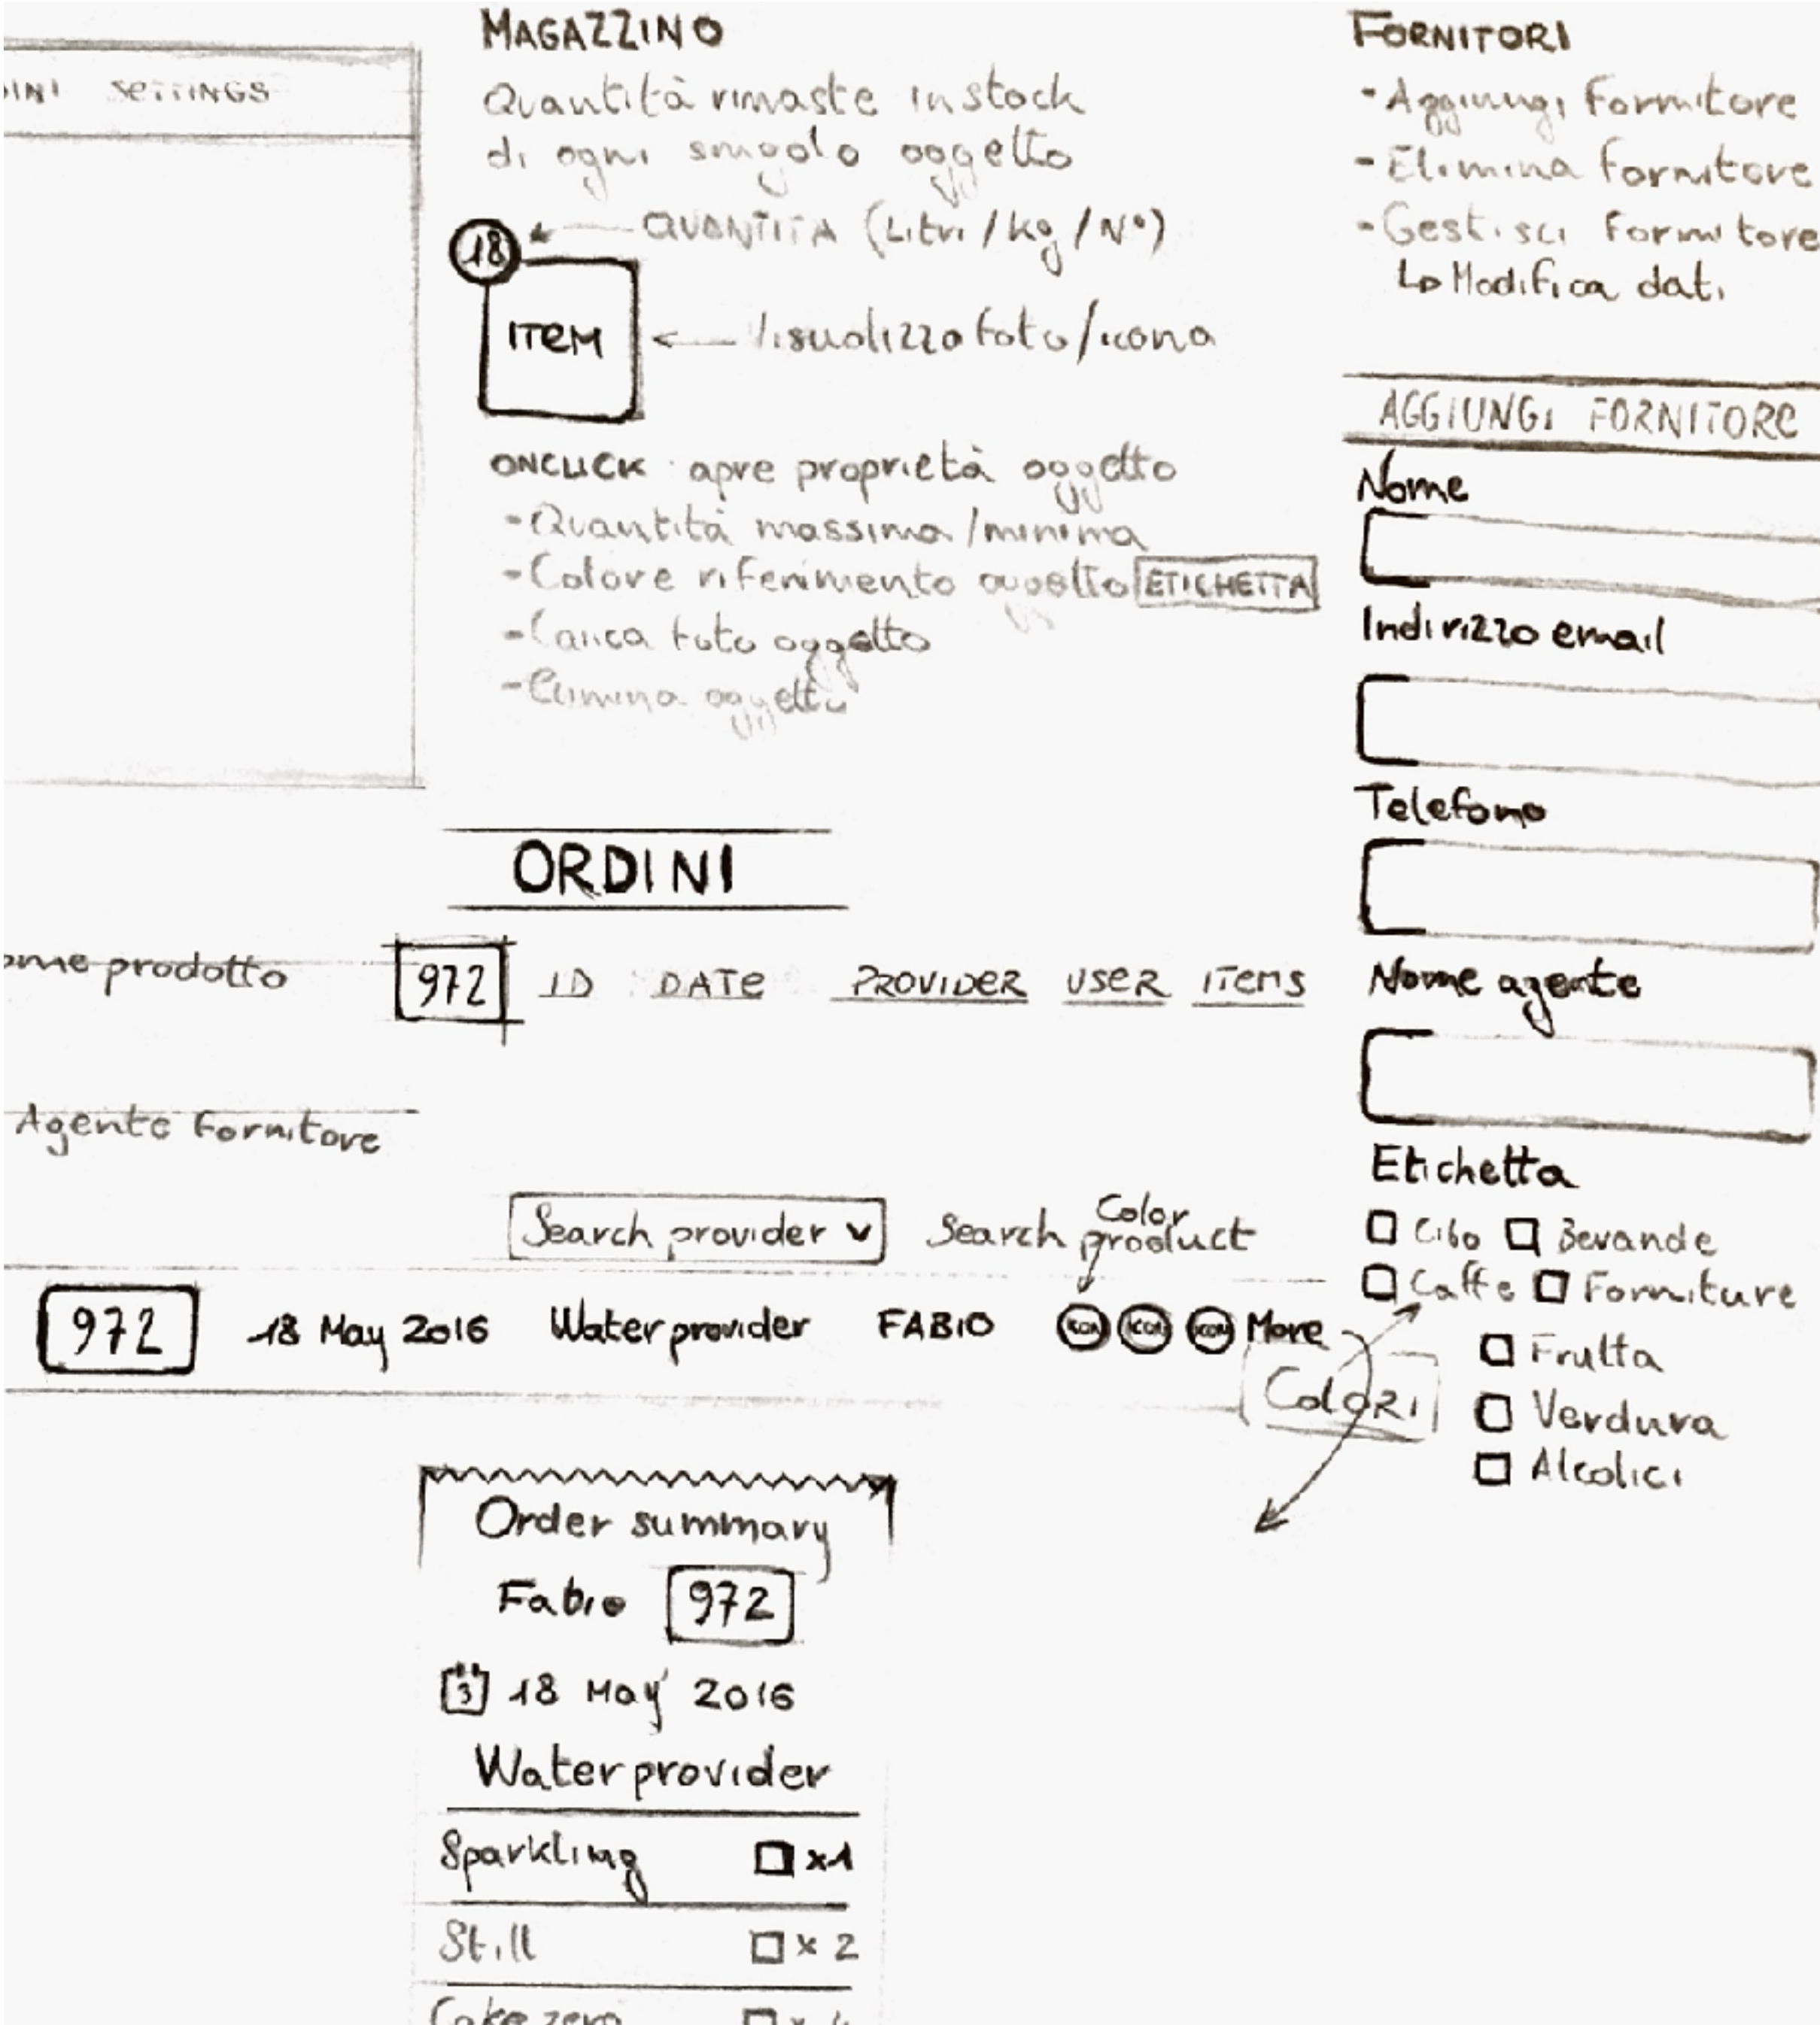 SETTINGS
MAGAZZINO
Quantità rimaste in stock
di ogni singolo oggetto
18
QUANTITA (Litri/kg/N°)
ITEM
Visualizza foto/icona
ONCLICK apre proprietà oggetto
-Quantità massima/minima
-Colore riferimento oggetto ETICHETTA
-Carica foto oggetto
-Elimina oggetto
FORNITORI
-Aggiungi fornitore
-Elimina fornitore
-Gestisci fornitore
Modifica dati
AGGIUNGI FORNITORE
Nome
Indirizzo email
Telefono
Nome agente
Etichetta
Cibo Bevande
Caffe Forniture
Frutta
Verdura
Alcolici
ORDINI
prodotto
972 ID DATE PROVIDER USER ITEMS
Agente fornitore
Search provider Search product
Color
972 18 May 2016 Water provider FABIO ICON ICON ICON More
COLORI
Order summary
Fabio 972
3 18 May 2016
Water provider
Sparkling x1
Still x 2
Coke zero